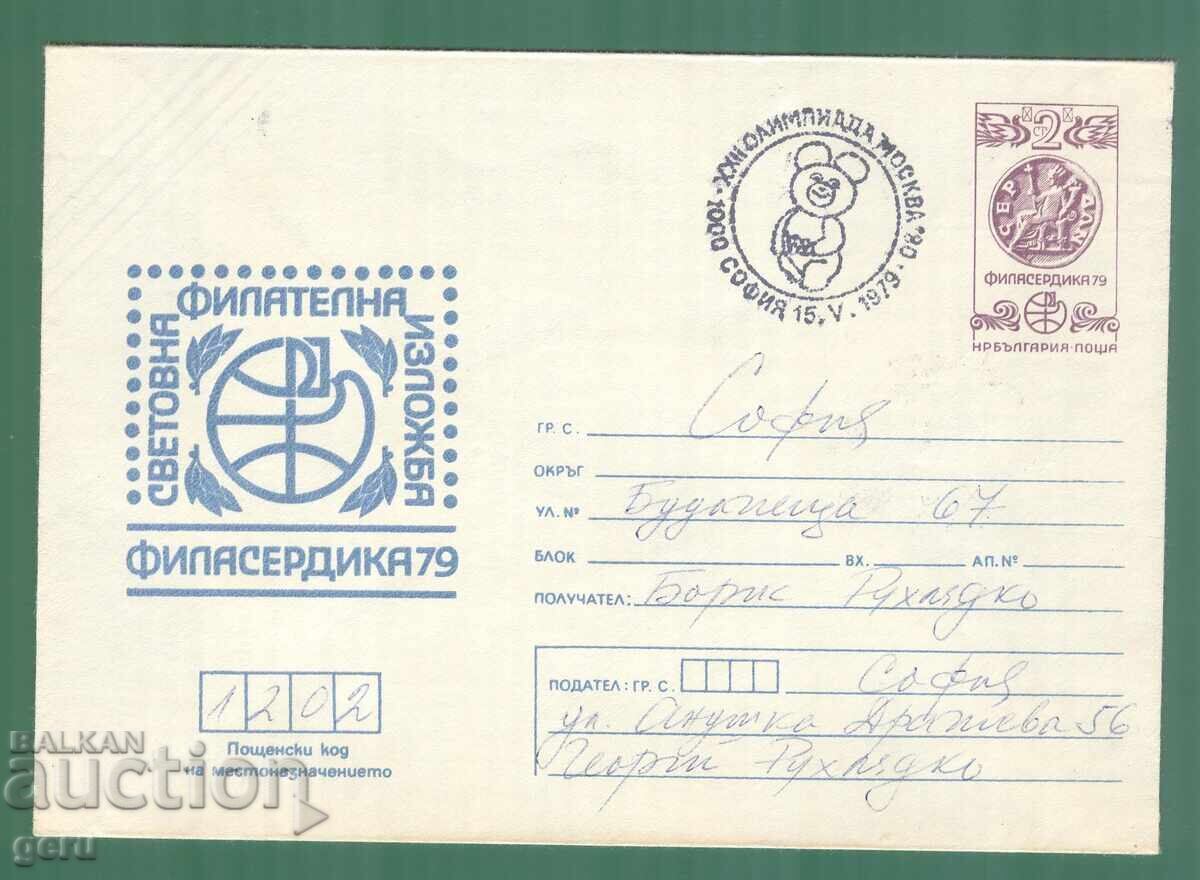 XXII ОЛИМПИАДА МОСКВА '80 · 1000 СОФИЯ 15.V.1979 ·
2 СТ
СЕР ДΩΝ
ФИЛАСЕРДИКА 79
НР БЪЛГАРИЯ · ПОЩА
СВЕТОВНА
ФИЛАТЕЛНА
ИЗЛОЖБА
ФИЛАСЕРДИКА 79
ГР. С. София
ОКРЪГ
УЛ. № Будапеща 67
БЛОК ВХ. АП. №
ПОЛУЧАТЕЛ: Борис Рухлядко
ПОДАТЕЛ: ГР. С. София
ул. Анушка Драгиева 56
Георги Рухлядко
1202
Пощенски код
на местоназначението
BALKAN
auction
geru